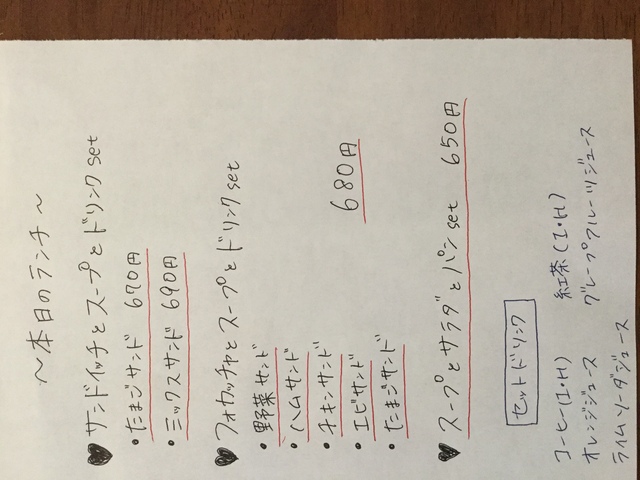 ～本日のランチ～
♥サンドイッチとスープとドリンクset
・たまごサンド 670円
・ミックスサンド 690円
♥フォカッチャとスープとドリンクset
・野菜サンド
・ハムサンド
・チキンサンド 680円
・エビサンド
・たまごサンド
♥スープとサラダとパンset 650円
セットドリンク
コーヒー(I・H) 紅茶(I・H)
オレンジジュース グレープフルーツジュース
ライムソーダジュース